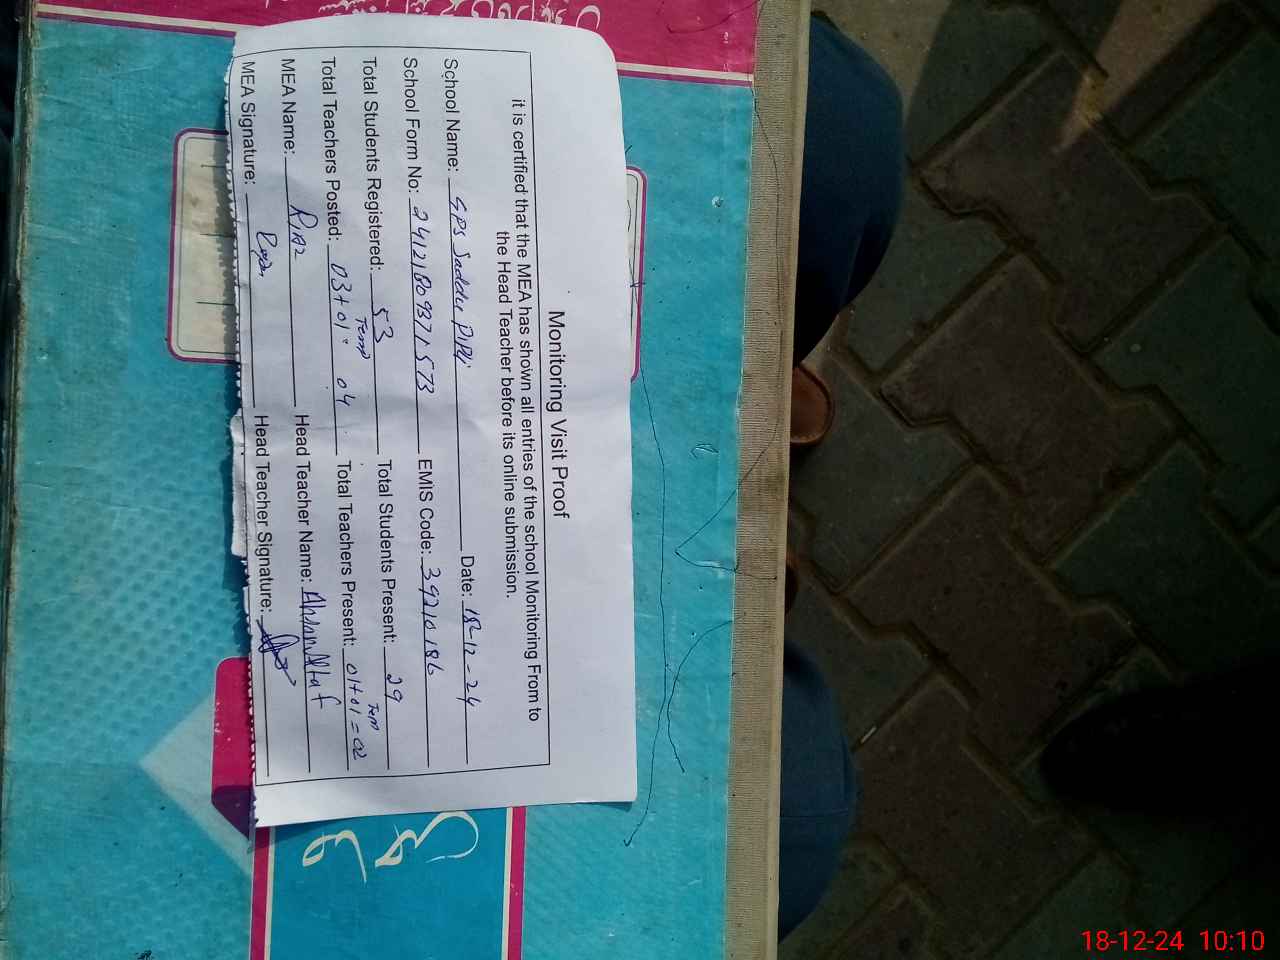 Monitoring Visit Proof
it is certified that the MEA has shown all entries of the school Monitoring From to
the Head Teacher before its online submission.
School Name: GPS Saddu Pipli Date: 18-12-24
School Form No: 24121809371573 EMIS Code: 39210186
Total Students Registered: 53 Total Students Present: 29
Total Teachers Posted: 03+01 Temp = 04 Total Teachers Present: 01+01 Tem = 02
MEA Name: RIAZ Head Teacher Name: Ahsan Altaf
MEA Signature: Head Teacher Signature:
18-12-24 10:10